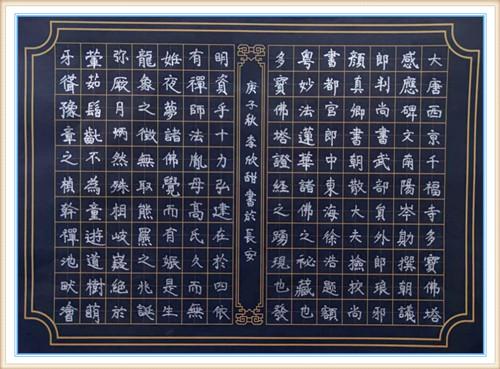 大唐西京千福寺多寶佛塔
感應碑文南陽岑勛撰朝議
郎判尚書武部員外郎琅邪
顏真卿書朝散大夫撿校尚
書都官郎中東海徐浩題額
粵妙法蓮華諸佛之祕藏也
多寶佛塔證經之踴現也發
庚子秋李欣甜書於長安
明資乎十力弘建在於四依
有禪師法胤母高氏久而無
姙夜夢諸佛覺而有娠是生
龍象之徵無取熊羆之兆誕
弥厥月炳然殊相岐嶷絕於
葷茹髫齔不為童遊道樹萌
牙聳豫章之楨幹禪池畎澮